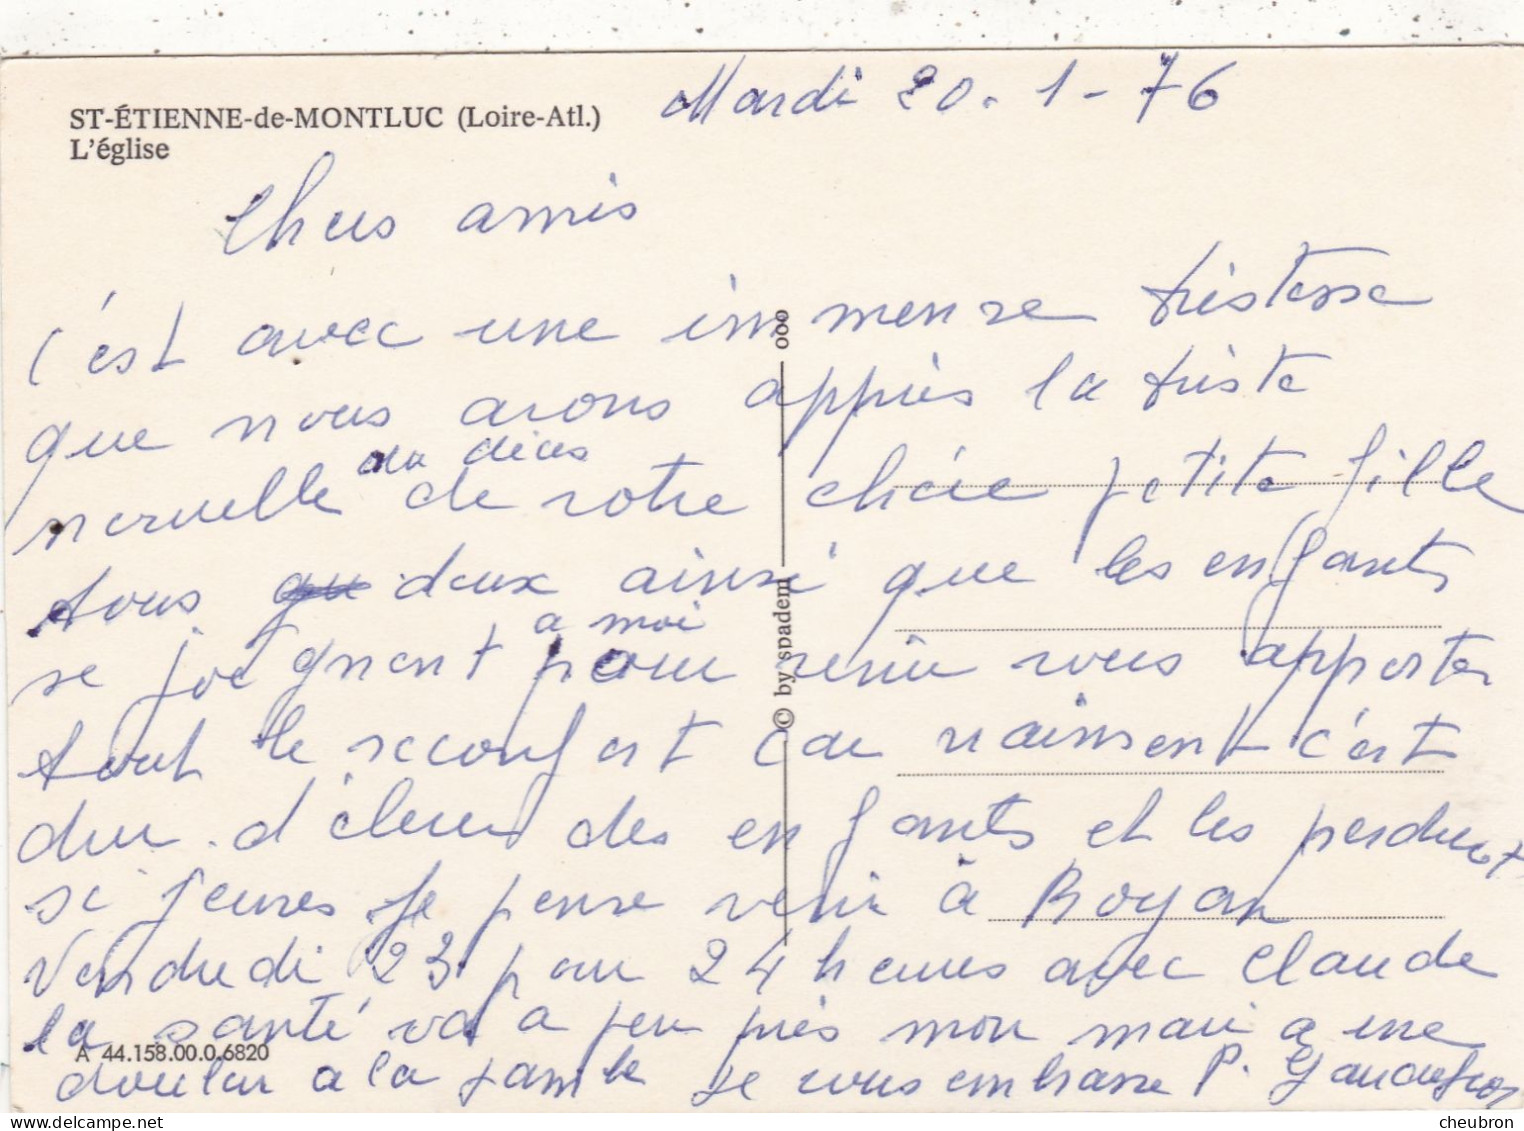 Mardi 20.1-76
ST-ÉTIENNE-de-MONTLUC (Loire-Atl.)
L'église
Chers amis
c'est avec une immense tristesse
que nous avons appris la triste
nouvelle du décès de votre chère petite fille
tous deux ainsi que les enfants
se joignent a moi pour venir vous apporter
tout le réconfort car vraiment c'est
dur d'élever des enfants et les perdre
si jeunes Je pense venir à Royan
Vendredi 23 pour 24 heures avec Claude
la santé va a peu près mon mari a une
douleur a la jambe Je vous embrasse P.
A 44.158.00.0.6820
© by spadem
ooo
cheubron.com